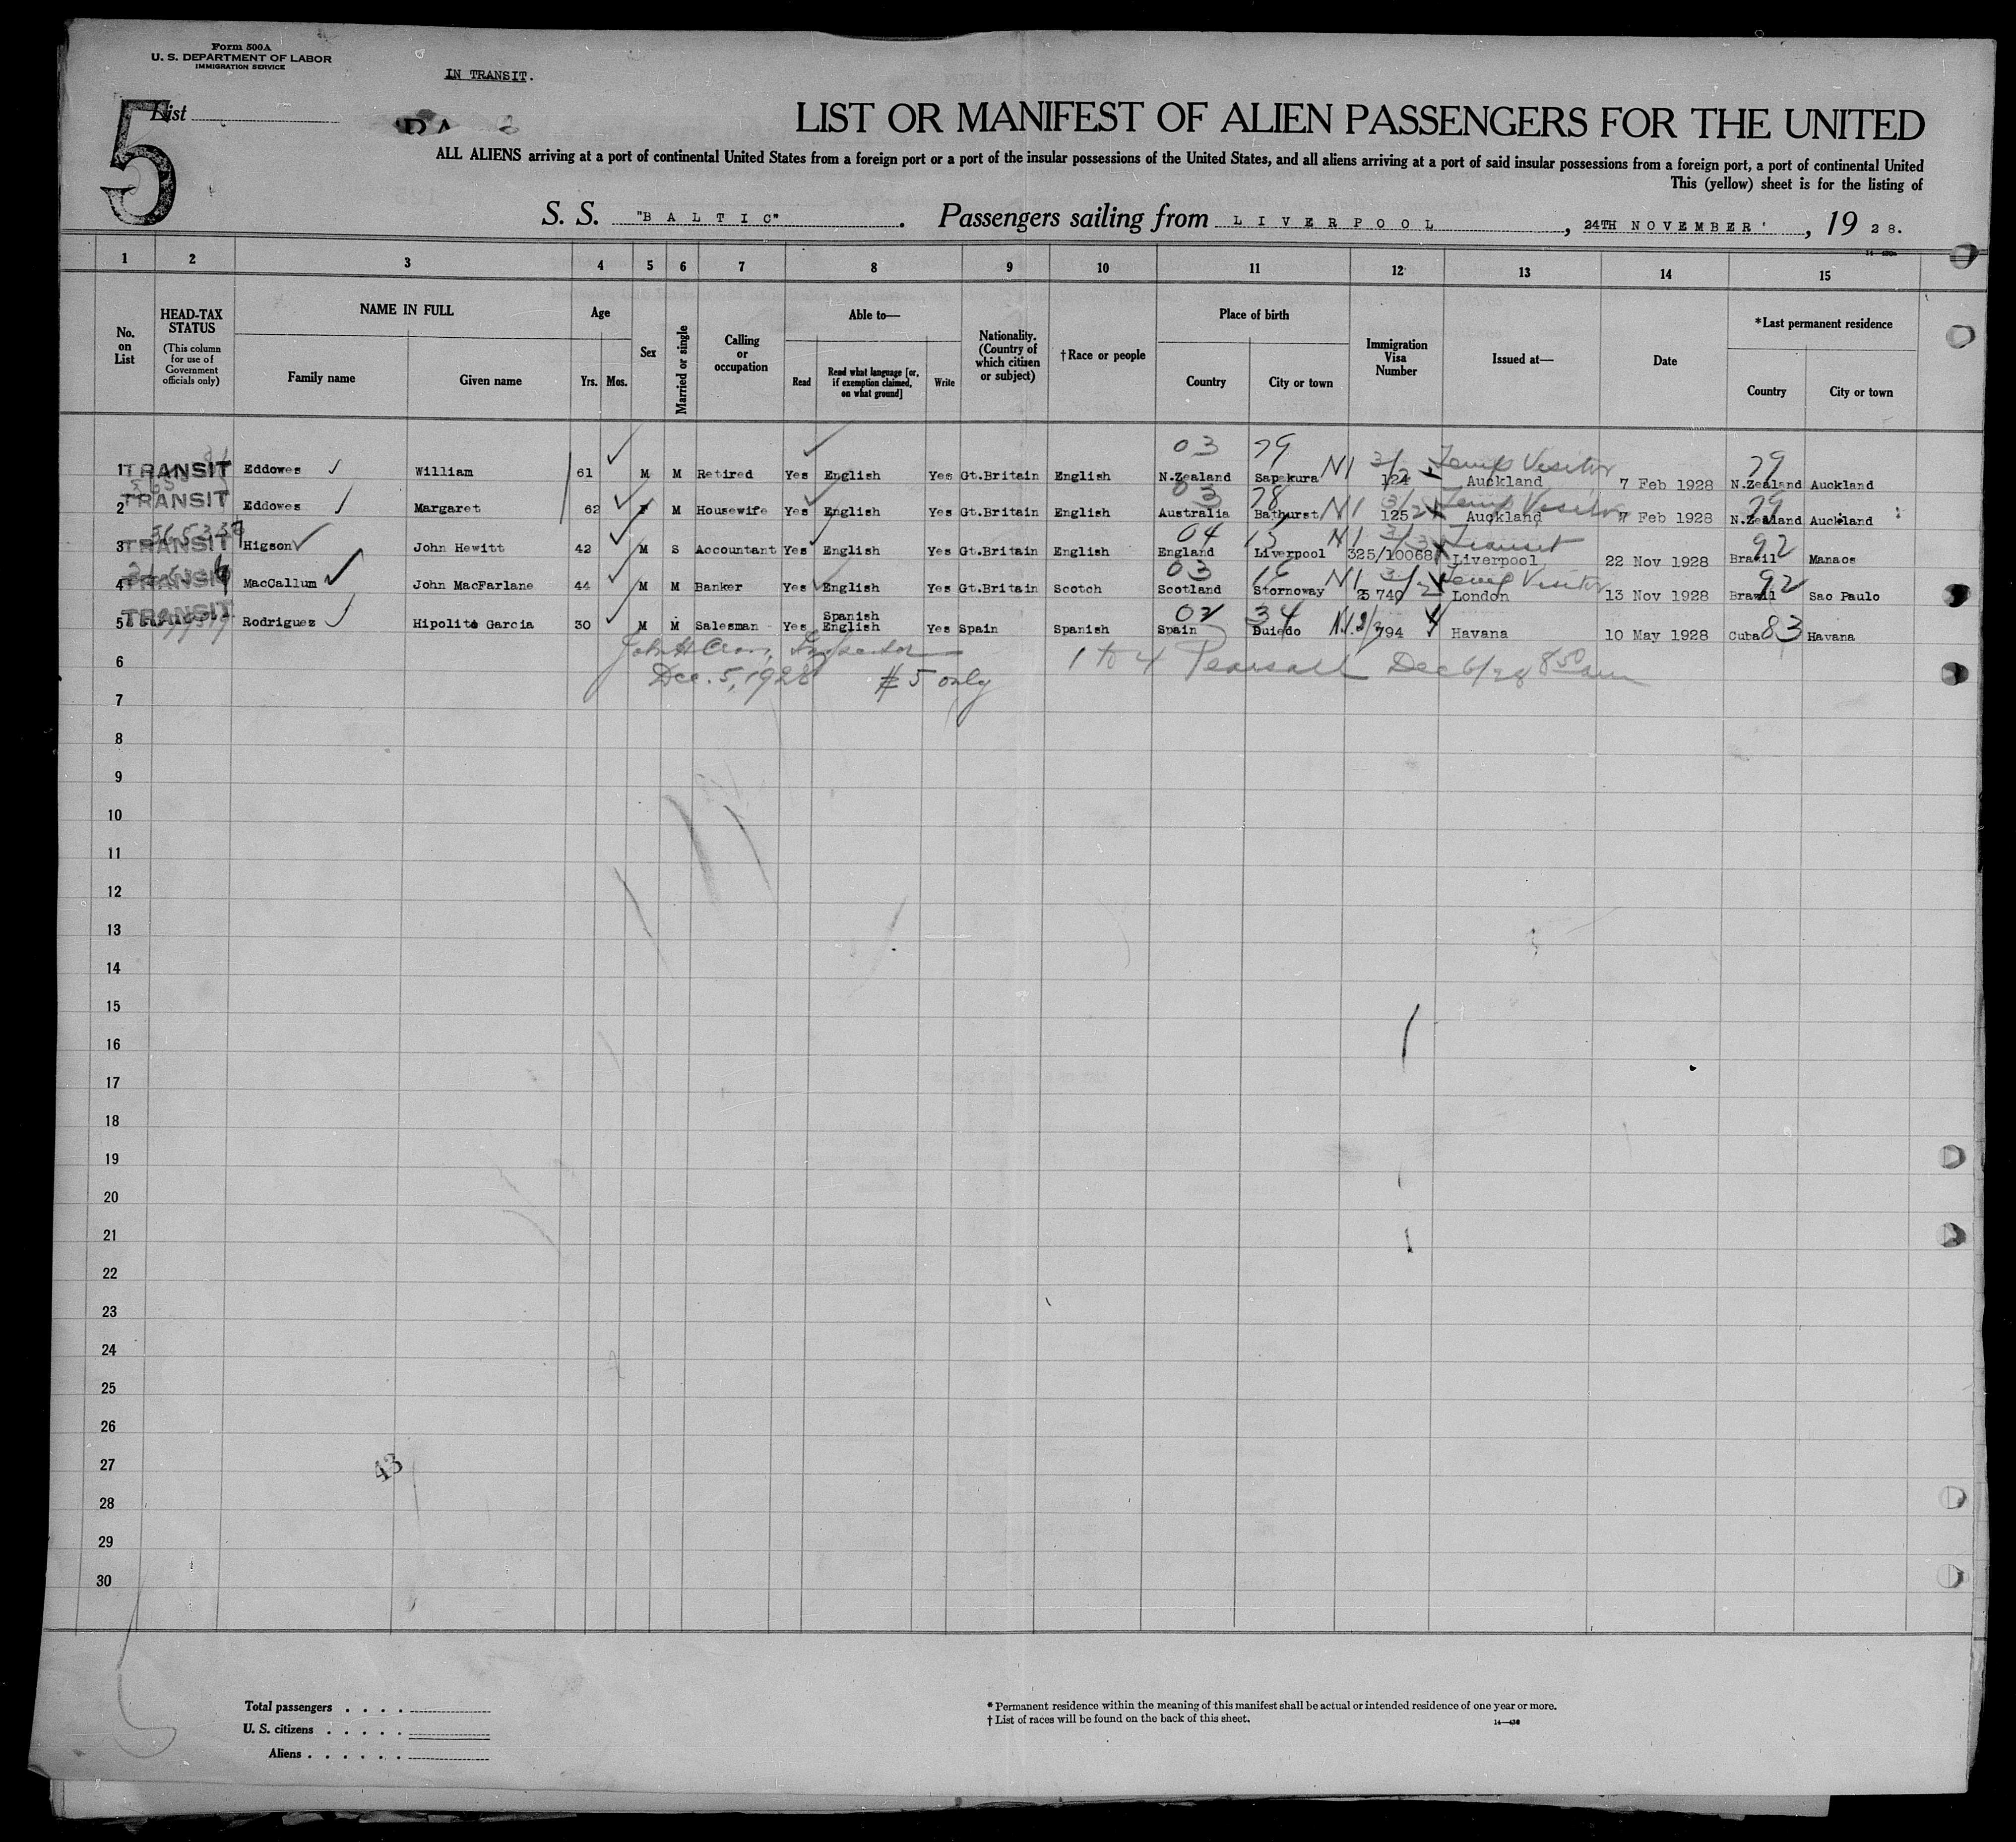 Form 500A
U. S. DEPARTMENT OF LABOR
IMMIGRATION SERVICE
IN TRANSIT.
5
List
LIST OR MANIFEST OF ALIEN PASSENGERS FOR THE UNITED
ALL ALIENS arriving at a port of continental United States from a foreign port or a port of the insular possessions of the United States, and all aliens arriving at a port of said insular possessions from a foreign port, a port of continental United
This (yellow) sheet is for the listing of
S. S. "BALTIC". Passengers sailing from LIVERPOOL, 24TH NOVEMBER', 1928.
1 2 3 4 5 6 7 8 9 10 11 12 13 14 15
No. on List
HEAD-TAX STATUS
(This column for use of Government officials only)
NAME IN FULL
Family name Given name
Age
Yrs. Mos.
Sex
Married or single
Calling or occupation
Able to—
Read
Read what language [or, if exemption claimed, on what ground]
Write
Nationality. (Country of which citizen or subject)
†Race or people
Place of birth
Country City or town
Immigration Visa Number
Issued at—
Date
*Last permanent residence
Country City or town
03 79 3/ Temp Visitor 79
1 TRANSIT Eddowes William 61 M M Retired Yes English Yes Gt.Britain English N.Zealand Sapekura N1 124 Auckland 7 Feb 1928 N.Zealand Auckland
03 78 N1 3/2 Temp Visitor 79
2 TRANSIT Eddowes Margaret 62 F M Housewife Yes English Yes Gt.Britain English Australia Bathurst 125 Auckland 7 Feb 1928 N.Zealand Auckland
04 13 N1 3/3 Transit 92
3 TRANSIT Higson John Hewitt 42 M S Accountant Yes English Yes Gt.Britain English England Liverpool 325/10068 Liverpool 22 Nov 1928 Brazil Manaos
03 16 N1 3/2 Temp Visitor 92
4 TRANSIT MacCallum John MacFarlane 44 M M Banker Yes English Yes Gt.Britain Scotch Scotland Stornoway 740 London 13 Nov 1928 Brazil Sao Paulo
02 34 83
5 TRANSIT Rodriguez Hipolito Garcia 30 M M Salesman Yes Spanish English Yes Spain Spanish Spain Duiedo 794 Havana 10 May 1928 Cuba Havana
Inspector
1 to 4 Pearsall Dec 6/28 8 50 am
Dec. 5, 1928 # 5 only
6
7
8
9
10
11
12
13
14
15
16
17
18
19
20
21
22
23
24
25
26
27
43
28
29
30
Total passengers
U. S. citizens
Aliens
* Permanent residence within the meaning of this manifest shall be actual or intended residence of one year or more.
† List of races will be found on the back of this sheet.